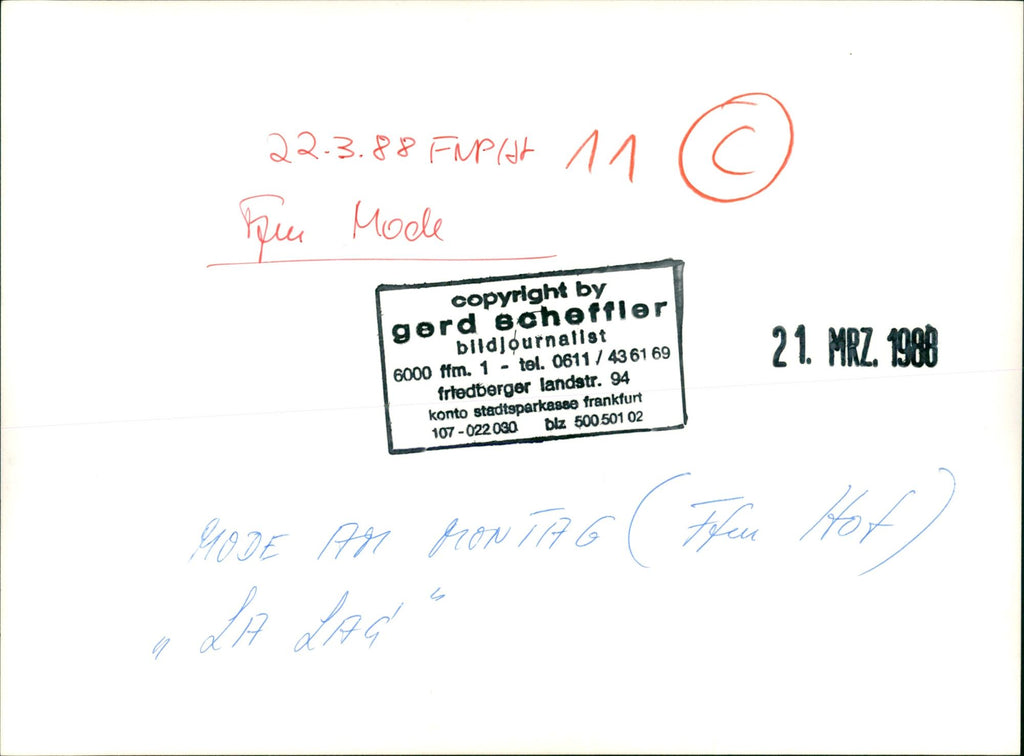 22.3.88 FNP/St 11 C
Ffm Mode
copyright by
gerd scheffler
bildjournalist
6000 ffm. 1 - tel. 0611 / 43 61 69
friedberger landstr. 94
konto stadtsparkasse frankfurt
107-022 030 blz 500 501 02
21. MRZ. 1988
MODE AM MONTAG (Ffm Hof)
„LA LAG'“